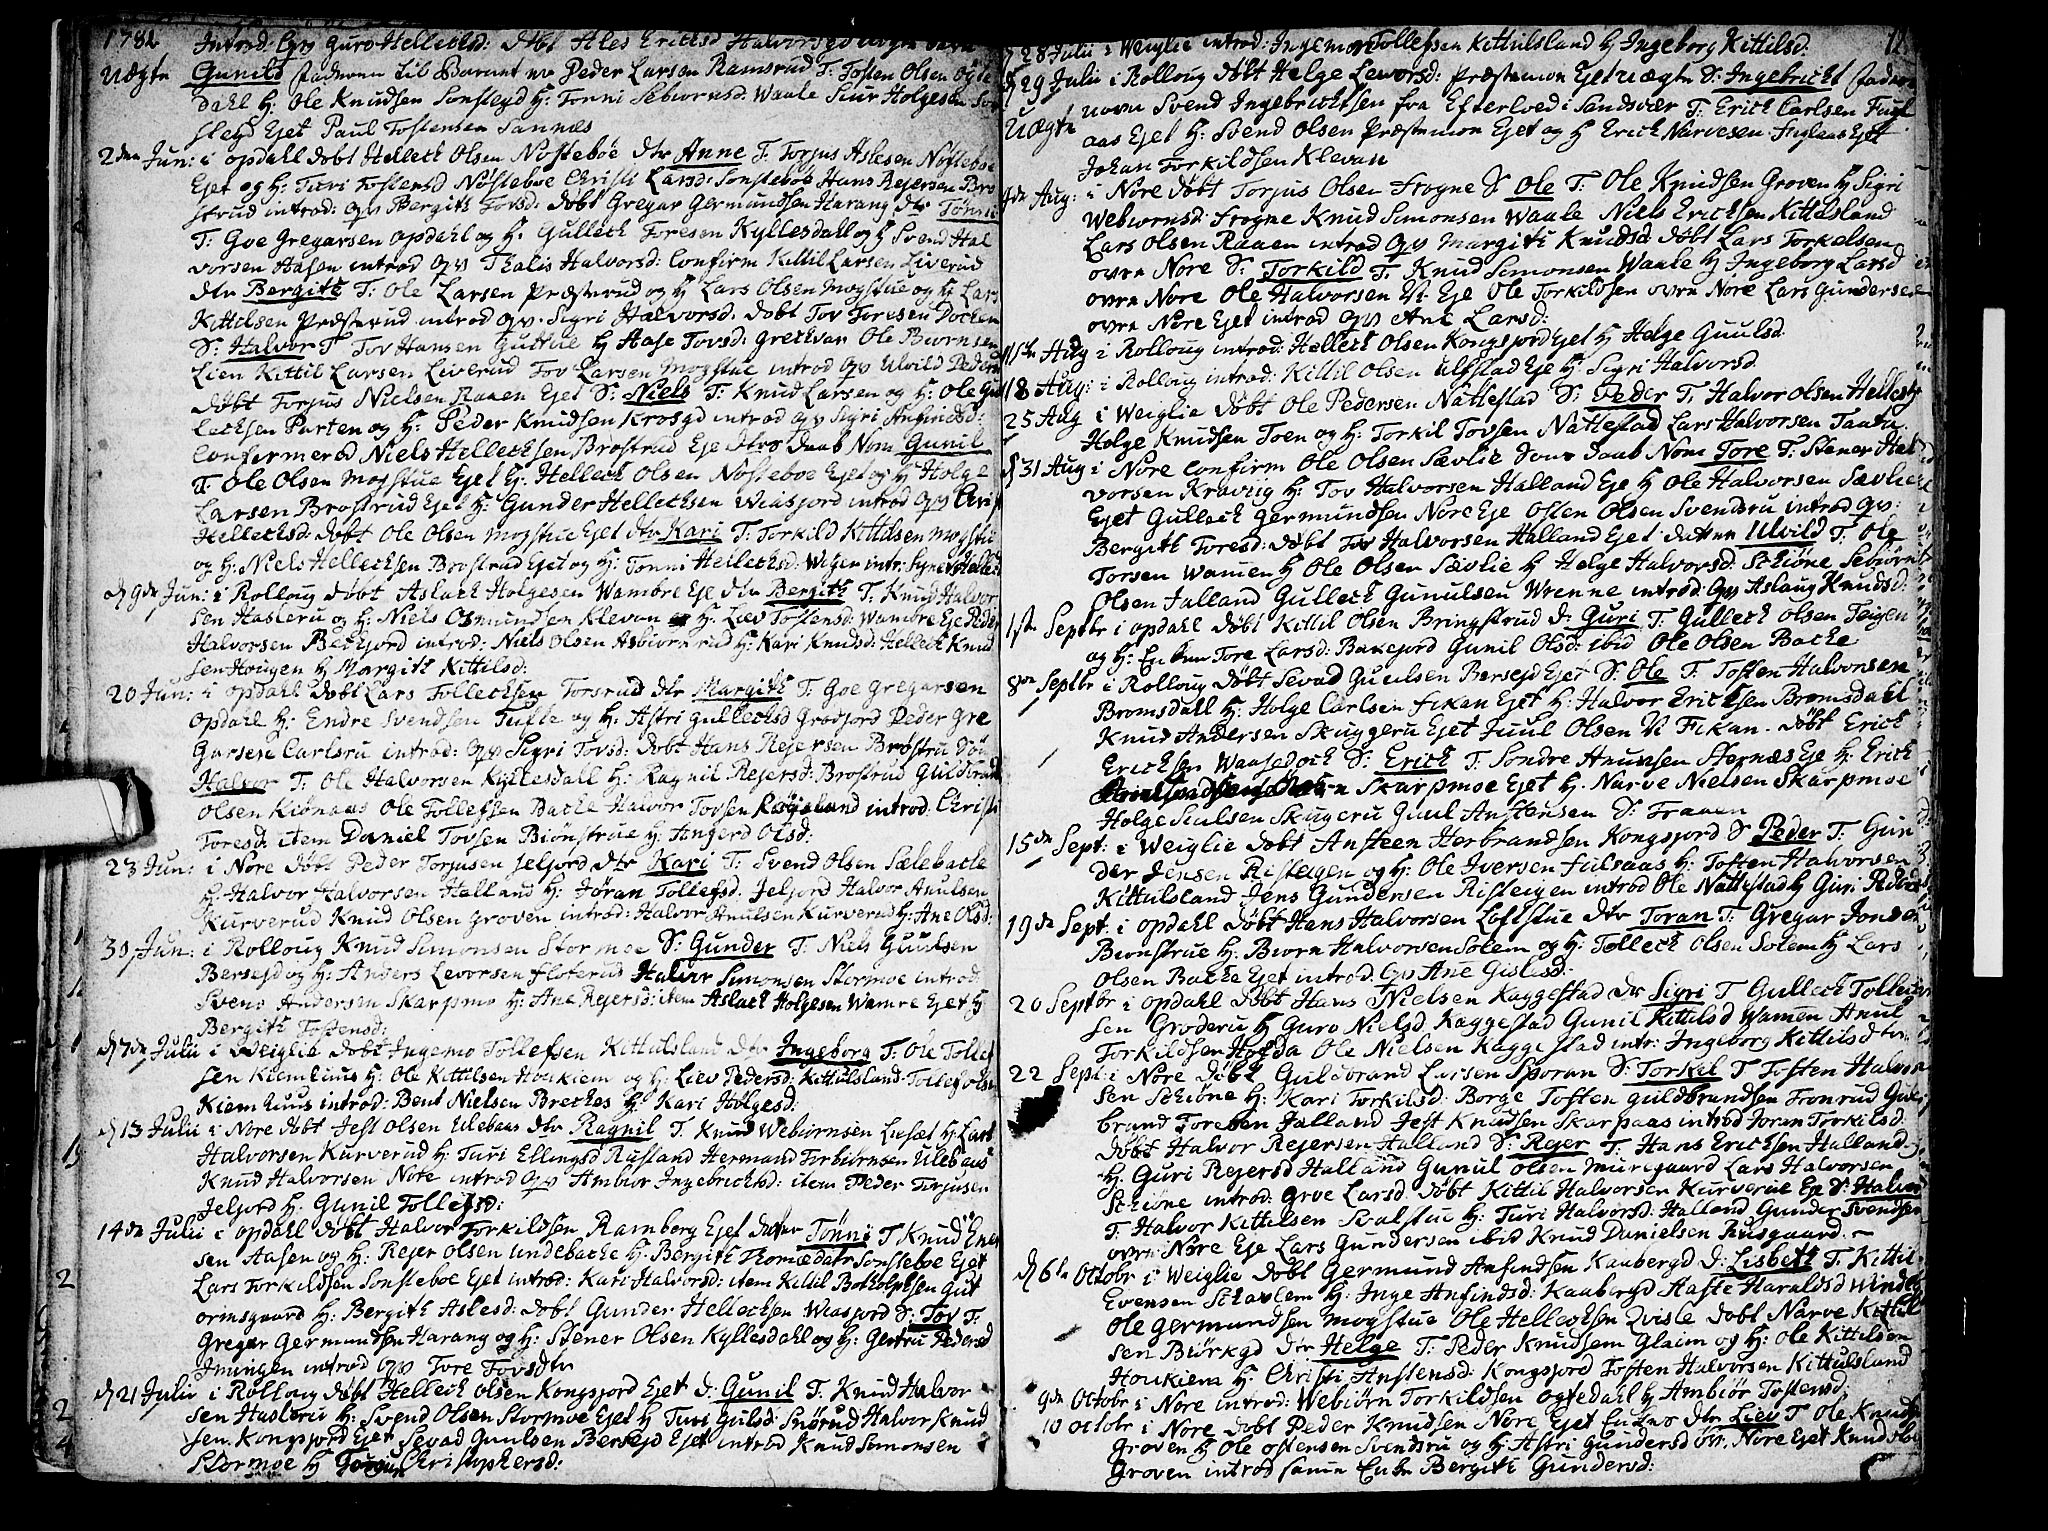 1782
Introd: qv Guro Hellechsd: döbt Ales Erichsd Halvorsgd
Uægte Gunild fadderen til Barnet er Peder Larsen Ramsrud T: Tosten Olsen
dahl H: Ole Knudsen Sonstegd H: Tonni Sebiornsd: Waale Siur Holgesen
stegd Ejet Paul Tostensen Sannes
2den Jun: i opdahl döbt Hellech Olsen Nösteböe dtr Anne T. Torjus Aslesen Nösteböe
Ejet og H: Turi Tostensd Nösteboe Christi Larsd: Sonsteboe Hans Rejersen Bro
strud introd: qv Bergith Tovsd: döbt Gregar Germundsen Harang dtr Tonni
T: Goe Gregarsen opdahl og H: Gullech Toresen Kyllesdall og H Svend Hal
vorsen Aasen introd qv Thalis Halvorsd: Confirm Kittil Larsen Liverud
dtr Bergith T: Ole Larsen Præsterud og H Lars Olsen Mogstue og H: Lars
Kittilsen Præsterud introd qv. Sigri Halvorsd. döbt Tov Toresen Docken
S: Halvor T Tov Hansen Guttue H Aase Tovsd: Grethvan Ole Biornsen
Lien Kittil Larsen Leverud Tov Larsen Mogstue introd qv Ulvild Peders
döbt Torjus Nielsen Raaen Ejet S: Niels T: Knud Larsen og H: Ole Gul
lechsen Parten og H: Peder Knudsen Krosgd introd qv Sigri Anfindsd:
Confirmerod Niels Hellechsen Brostrud Eje dtrs Daab Nom Gunil
T. Ole Olsen Mogstue Ejet H: Hellech Olsen Nosteboe Ejet og H Holge
Larsen Brostrud Ejet H: Gunder Hellechsen Wiasjord introd qv Christi
Hellechsd: döbt Ole Olsen Mogstue Ejet dtr Kari T. Torkild Kittilsen Mogstue
og H: Niels Hellechsen Brostrud Ejet og H: Tonni Hellechsd: Wigen intr: Synev Hellech
d 9de Jun: i Rolloug döbt Aslach Holgesen Wambre Eje dtr Bergith T. Knud Halvor
sen Hasleru og H: Niels Osmundsen Klevan og H: Liev Tostensd: Wambre Eje Peder
Halvorsen Bechjord introd: Niels Olsen Asbiornrud H: Kari Knudsd: Hellech Knud
sen Hougen H Margith Kittilsd:
20 Jun: i opdahl döbt Lars Tollechsen Torsrud dtr Margith T: Goe Gregarsen
Opdahl H: Endre Svendsen Tufte og H: Astri Gullechsd Grodjord Peder Gre
garsen Carlsru introd: qv Sigri Tovsd: döbt Hans Rejersen Bröstru Sön
Halvor T: Ole Halvorsen Kyllesdall H: Ragnil Rejersd: Brostrud Guldbrand
Olsen Kionaas Ole Tollefsen Bache Halvor Tovsen introd: Christi
Toresd: item Daniel Tovsen Biönstrue H: Angerd Olsd:
23 Jun: i Nore döbt Peder Torjusen Jeljord dtr Kari T: Svend Olsen Sælebache
H: Halvor Halvorsen Halland H: Jöran Tollefsd: Jeljord Halvor Anulsen
Kurverud Knud Olsen Groven introd: Halvor Anulsen Kurverud H: Ane Olsd:
30 Jun: i Rolloug Knud Simonsen Stormoe S: Gunder T: Niels Guulsen
Bersejd og H: Anders Levorsen Floterud Halvor Simonsen Stormoe introd:
Svend Andersen Skarpmo H: Ane Rejersd: item Aslach Holgesen Wamre Ejet H
Bergith Tostensd:
d 7de Julii i Weiglie döbt Ingemo Tollefsen Kittulsland dtr Ingeborg T: Ole Tollef
sen Kiemhuus H: Ole Kittilsen Houkiem og H: Liev Pedersd: Kittulsland Tollef Olsen
Kiemhuus introd: Bent Nielsen Breches H: Kari Holgesd:
d 13 Julii i Nore döbt Jest Olsen Ulebaas dtr Ragnil T. Knud Webiornsen H: Lars
Halvorsen Kurverud H: Turi Ellingsd Rustand Hermand Torbiörnsen Ulebaas
Knud Halvorsen Nore introd qv Ambior Ingebrichtsd: item Peder Torjusen
Jeljord H: Gunil Tollefsd:
14de Julii i opdahl döbt Halvor Torkildsen Ramberg Ejet datter Tönni T Knud
sen Aasen og H: Rejer Olsen Undebache H: Bergith Thomædatr Sonsteboe Ejet
Lars Torkildsen Sonsteboe Ejet introd: Kari Halvorsd: item Kittil Botolphsen Gut
ormsgaard H: Bergith Aslesd: döbt Gunder Hellechsen Wiasjord S: Tov T:
Gregar Germundsen Harang og H: Stener Olsen Kyllesdahl og H: Gertru Pedersd
Imingen introd qv Tore Tovsdtr
d 21 Julii i Rolloug döbt Hellech Olsen Kongsjord Ejet d: Gunil T. Knud Halvor
sen Hasleru H: Svend Olsen Stormoe Ejet H Turi Gulsd: Snörud Halvor Knud
sen Kongsjord Ejet Sevad Guulsen Bersejd Ejet introd Knud Simonsen
Stormoe H Christophersd:
d 28 Julii i Weiglie introd: Ingemo Tollefsen Kittulsland H Ingeborg Kittilsd:
d 29 Julii i Rolloug döbt Helge Levorsd: Præstemoe Ejet Uægte S: Ingebricht fader
Uægte navn Svend Ingebrichtsen fra Efterloed i Sandsvær T: Erich Carlsen Fugl
aas Ejet H: Svend Olsen Præstemoe Ejet og H Erich Narvesen Fuglaas Ejet
Johan Torkildsen Klevan
4de Aug: i Nore döbt Torjus Olsen Frogne S Ole T: Ole Knudsen Groven H Sigri
Webiornsd: Frogne Knud Simonsen Waale Niels Erichsen Kittilsland
Lars Olsen Raaen introd qv Margith Knudsd döbt Lars Torkelsen
ovre Nore S: Torkild T: Knud Simonsen Waale H Ingeborg Larsd
ovre Nore Ole Halvorsen Eje Ole Torkildsen ovre Nore Lars Gundersen
ovre Nore Ejet introd qv Ane Larsd:
11te Aug i Rolloug introd: Hellech Olsen Kongsjord Ejet H Helge Guulsd.
18 Aug: i Rolloug introd: Kittil Olsen Ulfstad Eje H: Sigri Halvorsd.
25 Aug i Weiglie döbt Ole Pedersen Nattestad S: Peder T: Halvor Olsen
Holge Knudsen Toen og H: Torkil Tovsen Nattestad Lars Halvorsen
d 31 Aug i Nore Confirm Ole Olsen Sævlie Sons Daab Nom Tore T: Stener Hal
vorsen Kraviig H: Tov Halvorsen Halland Eje H Ole Halvorsen Sævlie
Ejet Gullech Germundsen Nore Eje Osten Olsen Svendsru introd qv:
Bergith Toresd: döbt Tov Halvorsen Halland Ejet datter Ulvild T: Ole
Torsen Wamen H Ole Olsen Sævlie H Helge Halvorsd: Schiöne Sebiörn
Olsen Jalland Gullech Gunulsen Wrenne introd: qv Aslaug Knudsd:
1ste Septbr i opdahl döbt Kittil Olsen Bringstrud d: Guri T: Gullech Olsen Teigen
og H: Enken Tore Larsd: Bakejord Gunil Olsd: ibid Ole Olsen Bache
8de Septbr i Rolloug döbt Sevad Guulsen Bersejd Ejet S: Ole T: Tosten Halvorsen
Bromsdall H: Holge Carlsen Fekan Ejet H: Halvor Erichsen Bromsdahl
Knud Andersen Skuggeru Ejet Juul Olsen Fikan. döbt Erich
Erichsen Waasedoch S: Erich T. Sondre Anunsen Sternæs Eje H: Erich
Skarpmoe Ejet H: Narve Nielsen Skarpmoe
Holge Siulsen Skugeru Guul Anstensen S: Fraaen
15de Sept: i Weiglie döbt Ansteen Herbrandsen Kongsjord S Peder T: Gun
der Jensen Risteigen og H: Ole Iversen Fulsaas H: Tosten Halvorsen
Kittulsland Jens Gundersen Risteigen introd Ole Nattestad H Guri
19de Sept. i opdahl döbt Hans Halvorsen Loftstue dtr Toran T: Gregar Jonsen
Bionstrue H: Biorn Halvorsen Solem og H: Tollech Olsen Solem H Lars
Olsen Bache Ejet introd: qv Ane Gislesd:
20 Septbr i opdahl döbt Hans Nielsen Kaggestad dtr Sigri T Gullech Tollech
sen Groderu H Guro Nielsd Kaggestad Gunil Kittilsd Wamen Anul
Torkildsen Hofda Ole Nielsen Kaggestad intr: Ingeborg Kittilsdtr:
22 Sept: i Nore döbt Guldbrand Larsen Sporan S: Torkil T Tosten Halvor
sen Schiöne H: Kari Torkilsd: Borge Tosten Guldbrandsen Fronrud Guld
brand Toresen Jalland Jest Knudsen Skarpaas introd Joran Torkilsd:
döbt Halvor Rejersen Halland S: Rejer T: Hans Erichsen Halland
H: Guri Rejersd Halland Gunul Olsen Muregaard Lars Halvorsen
Schiöne introd: Groe Larsd. döbt Kittil Halvorsen Kurverue Eje S: Halvor
T: Halvor Kittilsen Svalstue H: Turi Halvorsd: Halland Gunder Svendsen
ovre Nore Eje Lars Gundersen ibid Knud Danielsen Rusgaard.
d 6te Octobr i Weiglie döbt Germund Anfindsen Kaabergd D: Lisbeth T. Kittil
Evensen Schavlem H: Inge Anfindsd: Kaabergd Aaste Haraldsd
Ole Germundsen Mogstue Ole Hellechsen Qvisle döbt Narve Kittil
sen Biörkgd dtr Helge T: Peder Knudsen Glaim og H: Ole Kittilsen
Houkiem H: Christi Anstensd: Kongsjord Tosten Halvorsen Kittulsland
9de Octobr i Nore introd: Webiörn Torkildsen Ogsedahl H Ambiör Tostensd:
10 octobr i Nore döbt Peder Knudsen Nore Ejet Enkes dtr Liev T Ole Knuds
Groven H Ole Ostensen Svendsru og H: Astri Gundersd ovr. Nore Ejet Knud
Groven introd samme Enke Bergith Gundersd: